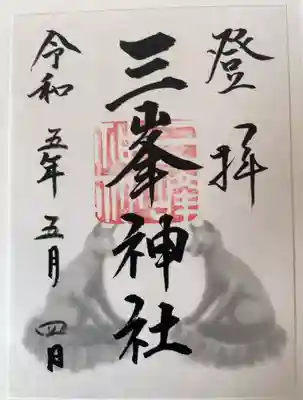 登拝
三峯神社
令和五年五月四日